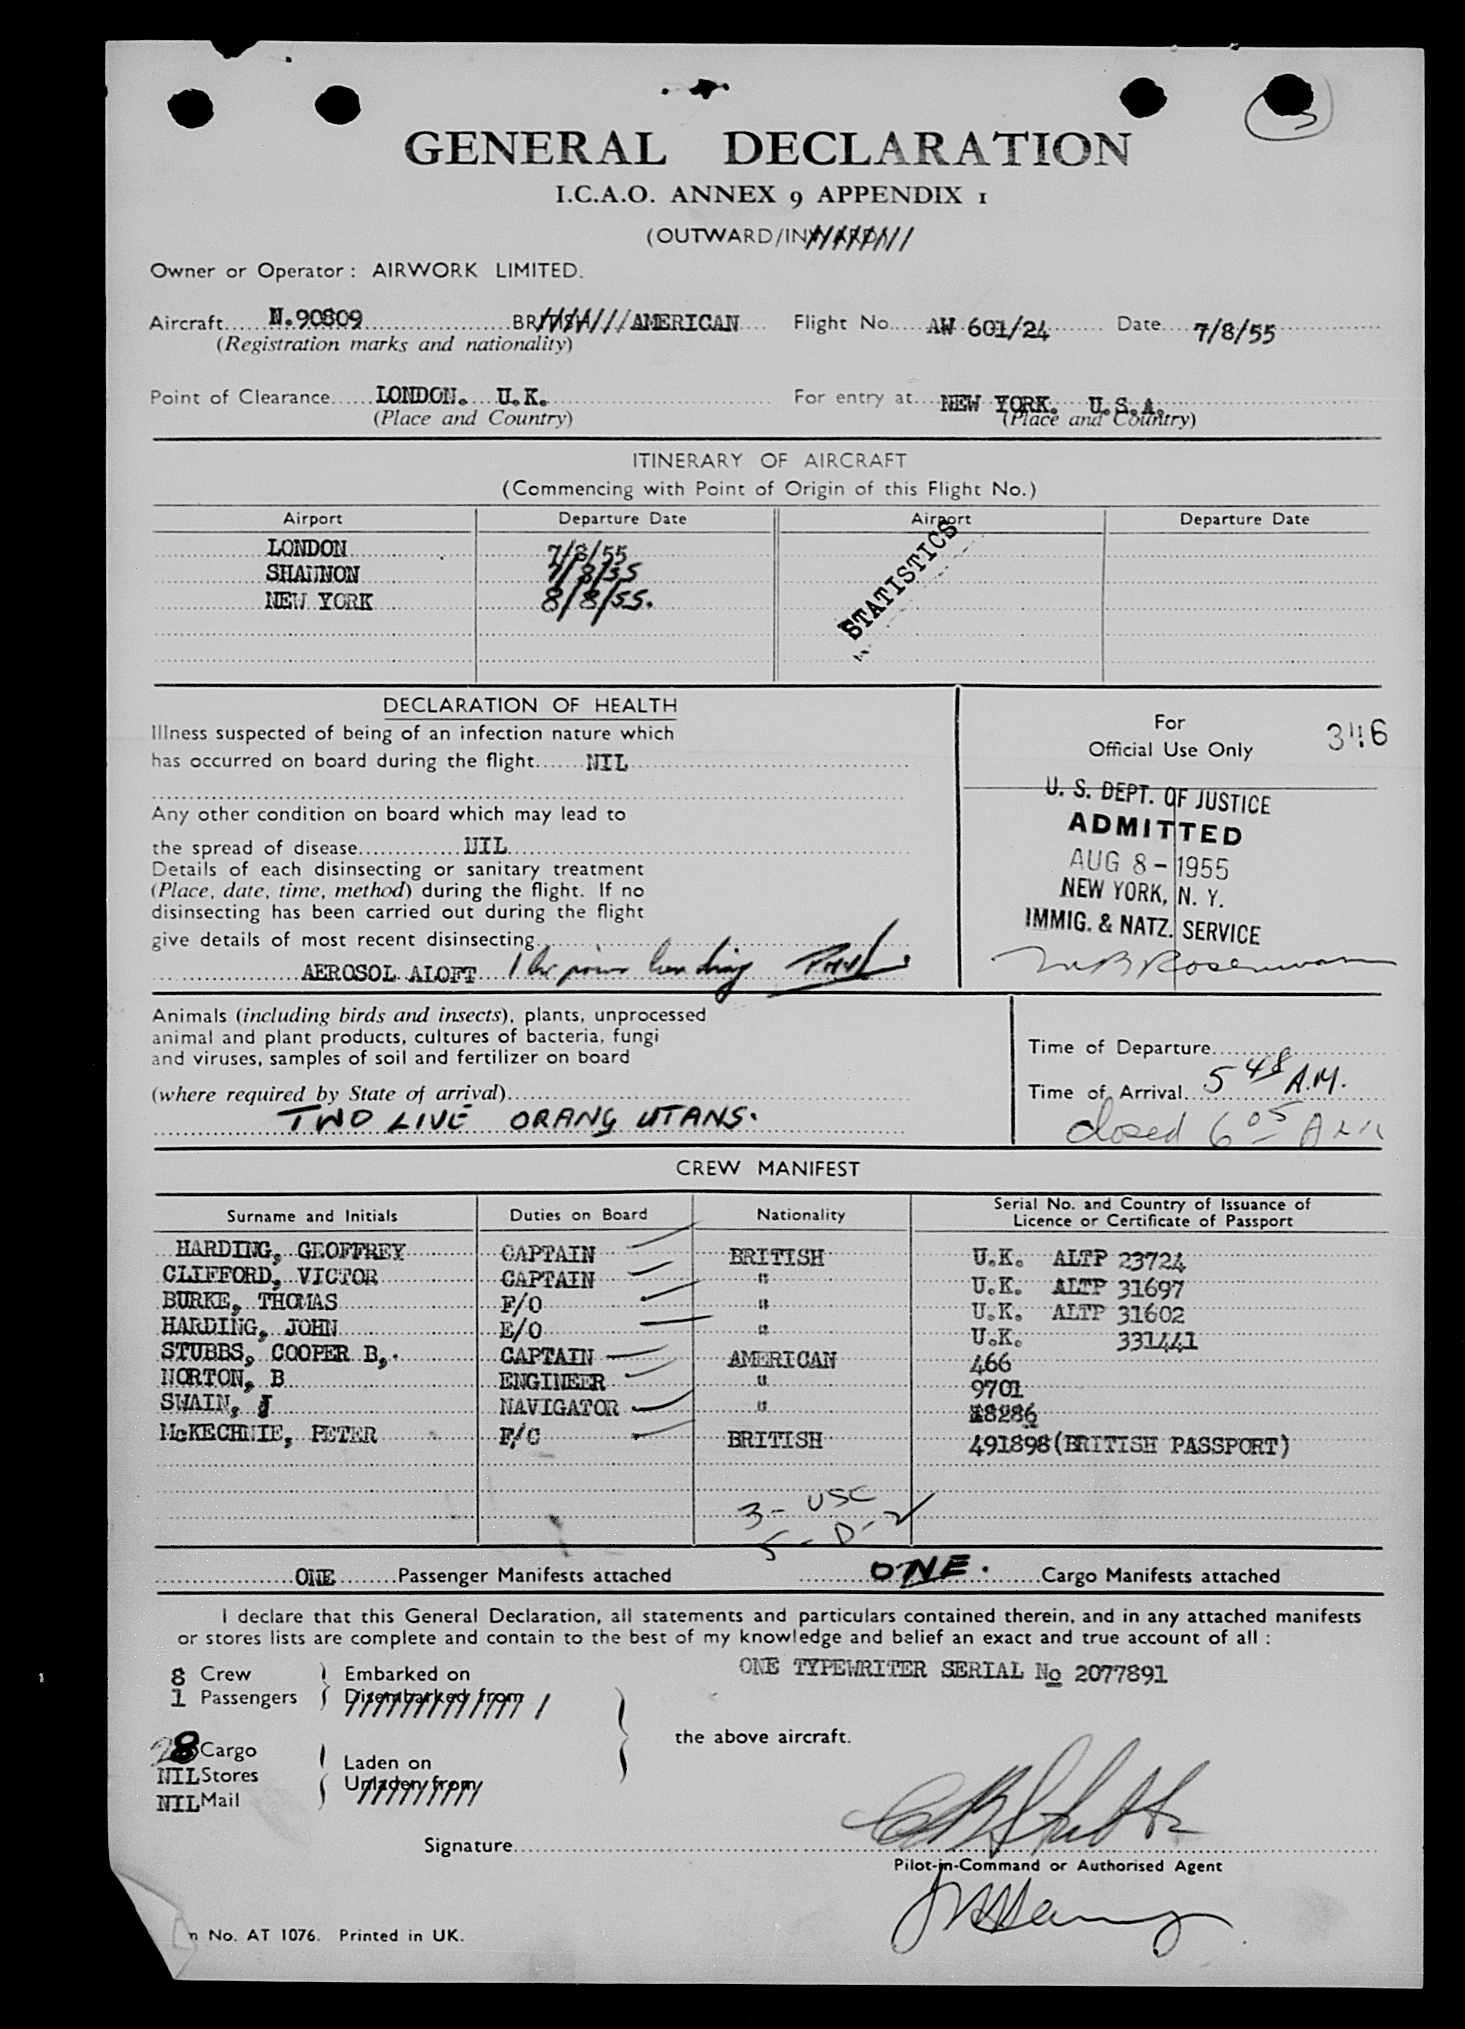 GENERAL DECLARATION
I.C.A.O. ANNEX 9 APPENDIX 1
(OUTWARD/INWARD)
Owner or Operator: AIRWORK LIMITED.
Aircraft N.90809 BRITISH AMERICAN Flight No. AW 601/24 Date 7/8/55
(Registration marks and nationality)
Point of Clearance LONDON. U.K. For entry at NEW YORK. U.S.A.
(Place and Country) (Place and Country)
ITINERARY OF AIRCRAFT
(Commencing with Point of Origin of this Flight No.)
Airport Departure Date Airport Departure Date
LONDON 7/8/55
SHANNON 7/8/55
NEW YORK 8/8/55.
STATISTICS
DECLARATION OF HEALTH
Illness suspected of being of an infection nature which
has occurred on board during the flight NIL
Any other condition on board which may lead to
the spread of disease NIL
Details of each disinsecting or sanitary treatment
(Place, date, time, method) during the flight. If no
disinsecting has been carried out during the flight
give details of most recent disinsecting
AEROSOL ALOFT 1 hr prior landing
For
Official Use Only
U. S. DEPT. OF JUSTICE
ADMITTED
AUG 8 - 1955
NEW YORK, N. Y.
IMMIG. & NATZ. SERVICE
Animals (including birds and insects), plants, unprocessed
animal and plant products, cultures of bacteria, fungi
and viruses, samples of soil and fertilizer on board
(where required by State of arrival)
TWO LIVE ORANG UTANS.
Time of Departure
Time of Arrival 5 48 A.M.
closed 6 05 A
CREW MANIFEST
Surname and Initials Duties on Board Nationality Serial No. and Country of Issuance of
Licence or Certificate of Passport
HARDING, GEOFFREY CAPTAIN BRITISH U.K. ALTP 23724
CLIFFORD, VICTOR CAPTAIN " U.K. ALTP 31697
BURKE, THOMAS F/O " U.K. ALTP 31602
HARDING, JOHN E/O " U.K. 331441
STUBBS, COOPER B,. CAPTAIN AMERICAN 466
NORTON, B ENGINEER " 9701
SWAIN, J NAVIGATOR " 18286
McKECHNIE, PETER F/C BRITISH 491898 (BRITISH PASSPORT)
3 - USC
5 - D-2
ONE Passenger Manifests attached ONE. Cargo Manifests attached
I declare that this General Declaration, all statements and particulars contained therein, and in any attached manifests
or stores lists are complete and contain to the best of my knowledge and belief an exact and true account of all :
8 Crew Embarked on ONE TYPEWRITER SERIAL No 2077891
1 Passengers Disembarked from
the above aircraft.
28 Cargo
NIL Stores Laden on
NIL Mail Unladen from
Signature
Pilot-in-Command or Authorised Agent
No. AT 1076. Printed in UK.